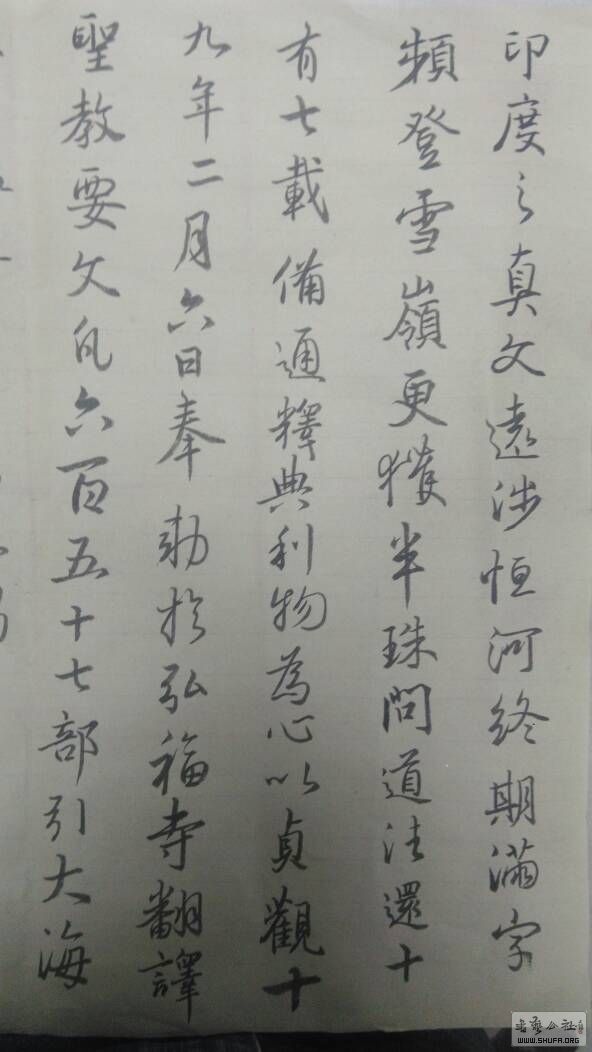 印度之真文遠涉恒河終期滿字
頻登雪嶺更獲半珠問道法還十
有七載備通釋典利物為心以貞觀十
九年二月六日奉勅於弘福寺翻譯
聖教要文凡六百五十七部引大海
WWW.SHUFA.ORG